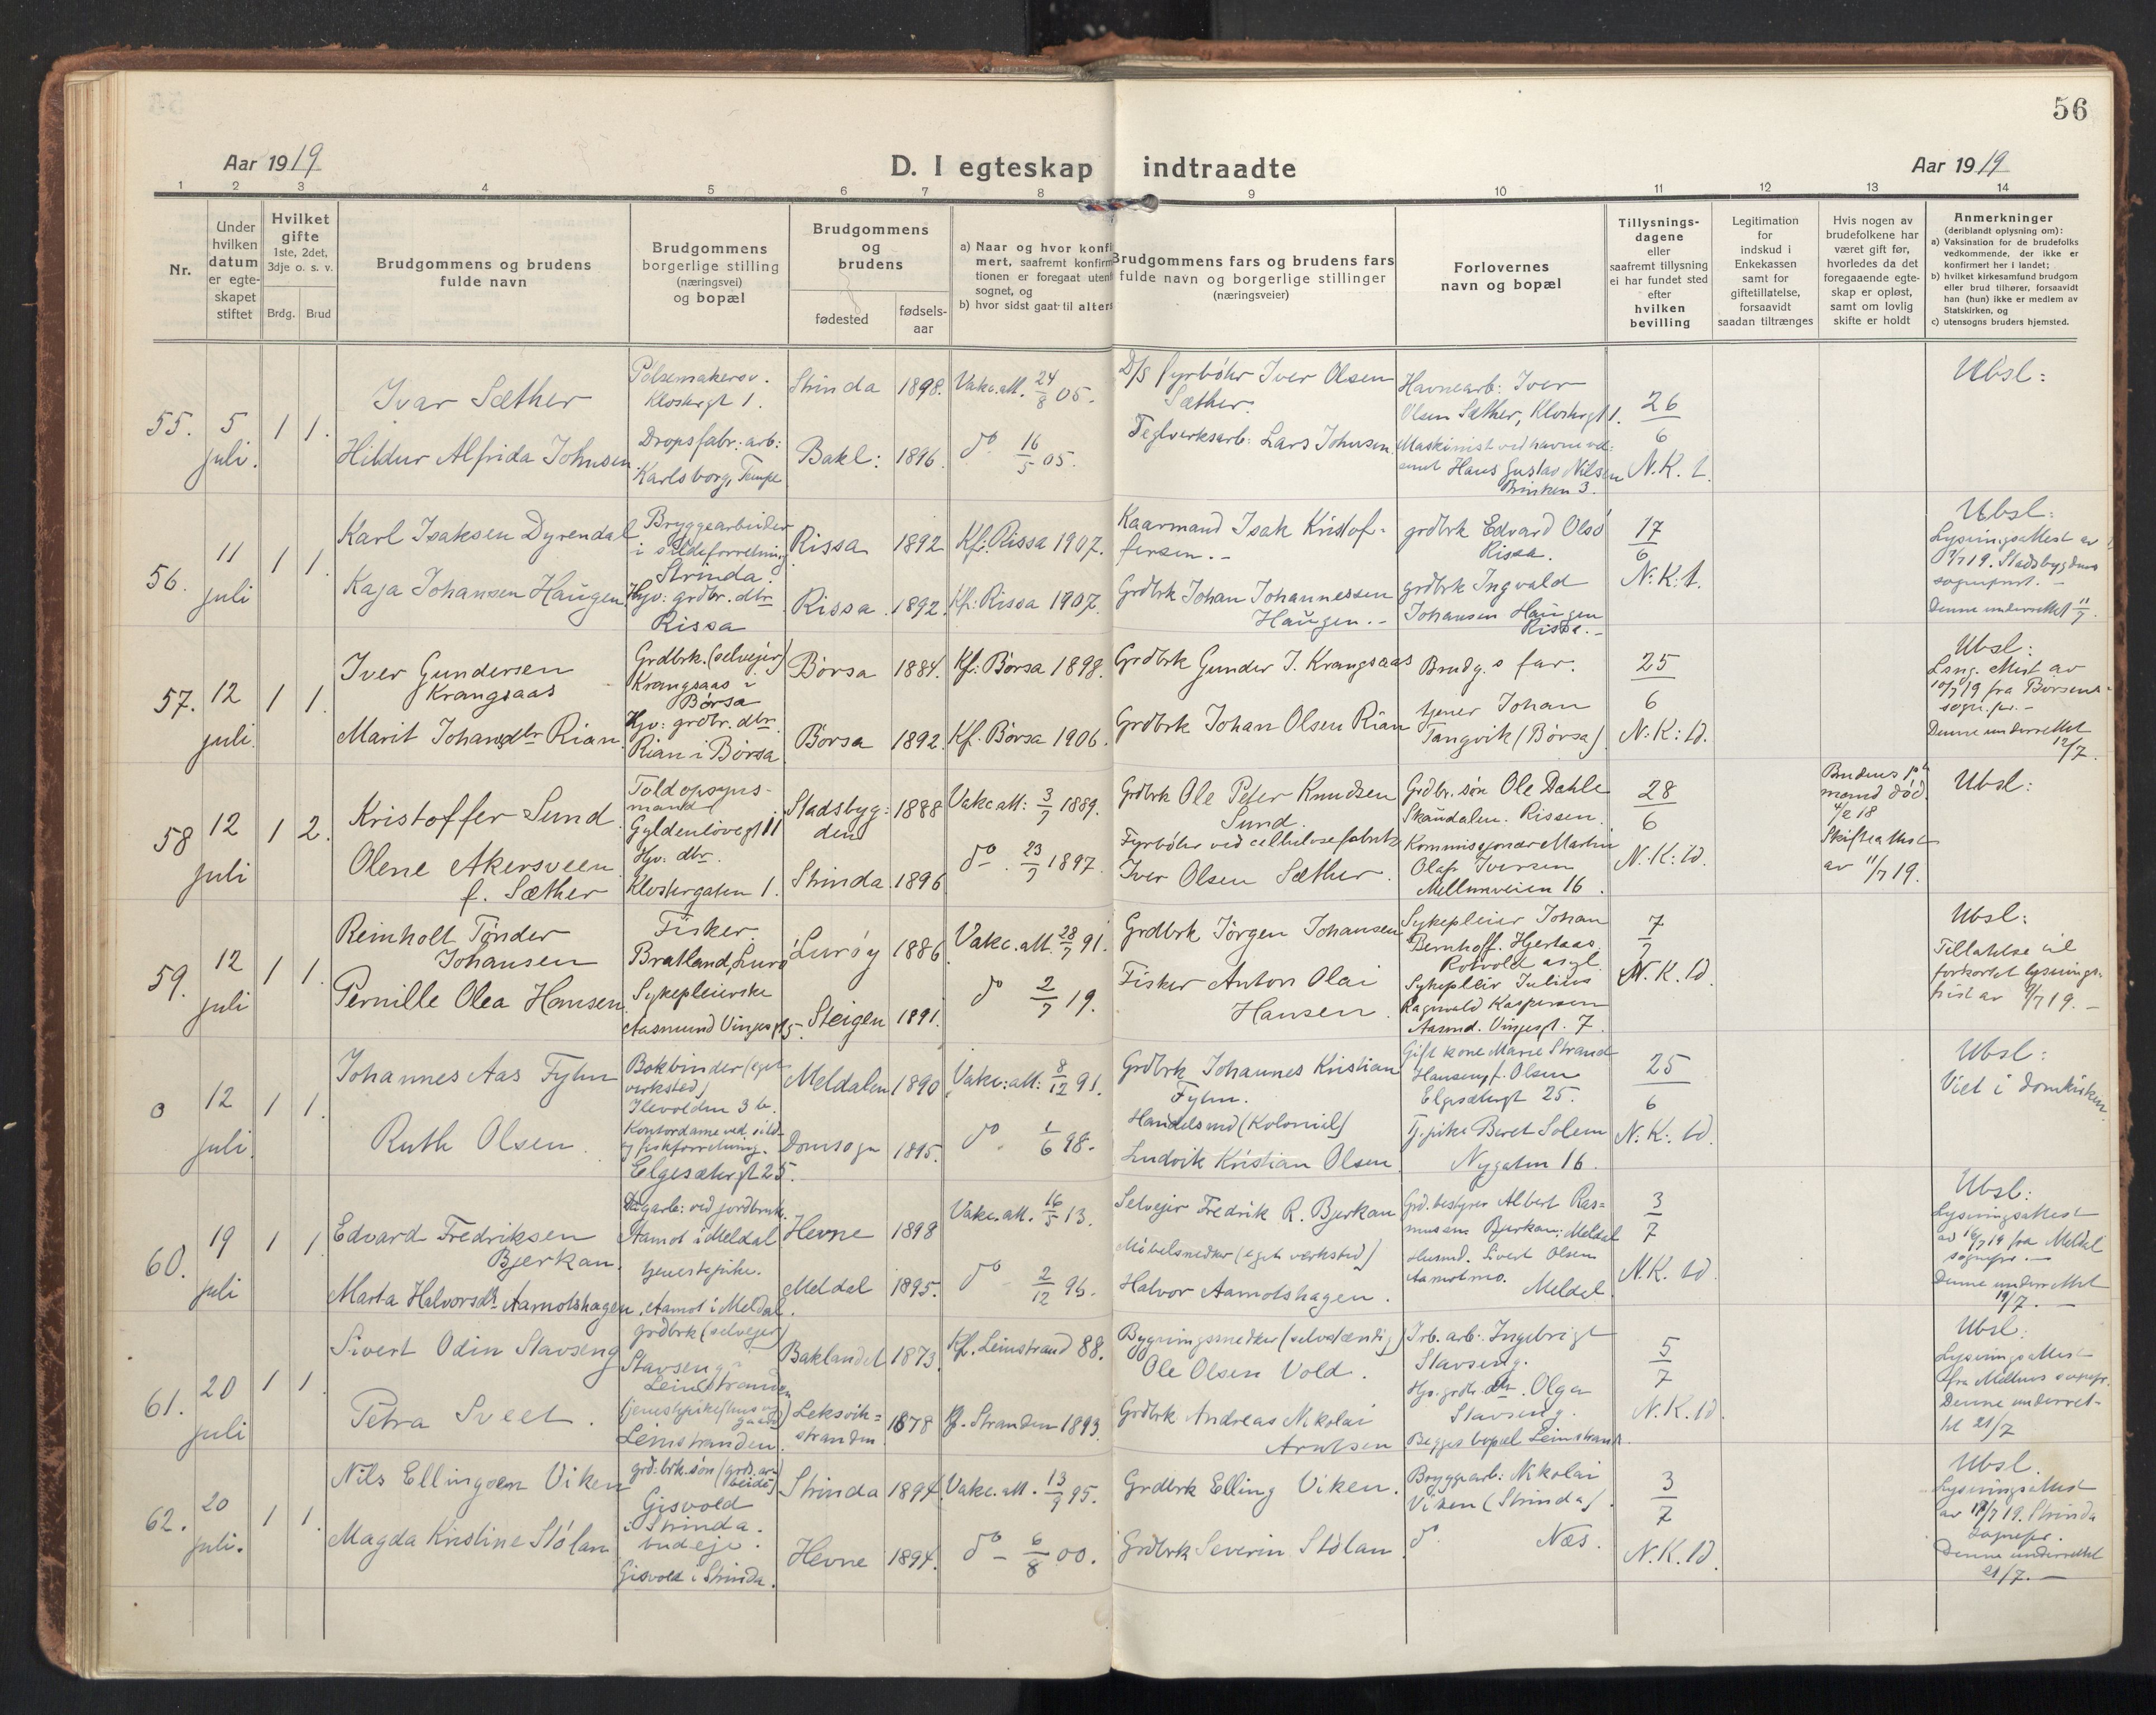 56
Aar 1919
D. I egteskap indtraadte
Aar 1919
1 2 3 4 5 6 7 8 9 10 11 12 13 14
Nr.
Under
hvilken
datum
er egte-
skapet
stiftet
Hvilket
gifte
1ste, 2det,
3dje o. s. v.
Brdg. Brud
Brudgommens og brudens
fulde navn
Brudgommens
borgerlige stilling
(næringsvei)
og bopæl
Brudgommens
og
brudens
fødested
fødsels-
aar
a) Naar og hvor konfi
mert, saafremt konfirm
tionen er foregaat utenf
sognet, og
b) hvor sidst gaat til alters
Brudgommens fars og brudens fars
fulde navn og borgerlige stillinger
(næringsveier)
Forlovernes
navn og bopæl
Tillysnings-
dagene
eller
saafremt tillysning
ei har fundet sted
efter
hvilken
bevilling
Legitimation
for
indskud i
Enkekassen
samt for
giftetillatelse,
forsaavidt
saadan tiltrænges
Hvis nogen av
brudefolkene har
været gift før,
hvorledes da det
foregaaende egte-
skap er opløst,
samt om lovlig
skifte er holdt
Anmerkninger
(deriblandt oplysning om):
a) Vaksination for de brudefolks
vedkommende, der ikke er
konfirmert her i landet;
b) hvilket kirkesamfund brudgom
eller brud tilhører, forsaavidt
han (hun) ikke er medlem av
Statskirken, og
c) utensogns bruders hjemsted.
55. 5 juli. 1 1.
Ivar Sæther
Pølsemakersv.
Klostergt 1.
Strinda 1898. Vakc. att. 24/8 05.
D/S fyrbøter Iver Olsen
Sæther.
Havnearb: Iver
Olsen Sæther, Klostergt 1.
26/6
N.K. 1.
Ubsl:
Hildur Alfrida Johnsen.
Dropsfabr: arb:
Karlsborg, Tempe
Bakl: 1896. do 16/5 05.
Teglverksarb: Lars Johnsen.
Maskinist ved havnevæ-
Hans Gustav Nilsen
Brinken 3.
56. 11 juli 1 1.
Karl Isaksen Dyrendal
Bryggearbeider
i sildeforretning
Strinda.
Rissa 1892 Kf: Rissa 1907.
Kaarmand Isak Kristof-
fersen. -
grdbrk Edvard Olsø
Rissa.
17/6
N:K:1.
Ubsl:
Lysningsattest av
7/7 19. Stadsbygdens
sogneprst. -
Denne underrettet 11/7.
Kaja Johansen Haugen
Hjv: grdbr. dtr
Rissa
Rissa. 1892. Kf: Rissa 1907.
Grdbrk Johan Johannessen
Haugen. -
grdbrk Ingvald
Johansen Haugen
Rissa. -
57. 12 juli. 1 1.
Iver Gundersen
Krangsaas
Grdbrk. (selvejer)
Krangsaas i
Børsa
Børsa 1884. Kf: Børsa 1898.
Grdbrk Gunder I. Krangsaas
Brudg.s far.
25/6
N:K:1d.
Ubsl:
Lsng. Attest av
10/7 19 fra Børsens
sogn.pr. -
Denne underrettet
12/7.
Marit Johansdtr Rian.
Hjv: grdbr. dtr.
Rian i Børsa
Børsa 1892. Kf. Børsa 1906.
Grdbrk Johan Olsen Rian
tjener Johan
Tangvik (Børsa).
58 12 juli 1 2.
Kristoffer Sund.
Toldopsyns-
mand
Gyldenløvegt 11
Stadsbyg-
den
1888 Vakc att: 3/7 1889.
Grdbrk Ole Peter Knudsen
Sund.
Grdbr. søn Ole Dahle
Skaudalen. Rissen.
28/6
N.K:1d.
Brudens 1ste
mand død.
4/2 18
Skifteattest
av 11/7 19.
Ubsl:
Olene Akersveen
f. Sæther
Hjv. dtr.
Klostergaten 1.
Strinda. 1896 do. 23/7 1897.
Fyrbøter ved cellulosefabrik
Iver Olsen Sæther.
Kommissjonær Martin
Olaf Iversen
Mellemveien 16.
59. 12 juli 1 1.
Reinholt Tønder
Johansen
Fisker.
Bratland, Lurø
Lurøy 1886 Vakc. att. 28/7 91.
Grdbrk Jørgen Johansen
Sykepleier Johan
Bernhoff. Hjertaas,
Rotvold asyl.
7/7
N.K. 1d.
Ubsl:
Tillatelse til
forkortet lysnings-
frist av 9/7 19. -
Pernille Olea Hansen.
Sykepleierske
Aasmund Vinjesgt 5.
Steigen 1891. do 2/7 19.
Fisker Anton Olai
Hansen.
Sykepleir Julius
Ragnvald Kaspersen
Aasmd. Vinjesgt. 7.
0 12 juli. 1 1.
Johannes Aas Fyhn
Bokbinder (eget
verksted)
Ilevolden 3 b.
Meldalen 1890 Vakc: att: 8/12 91.
Grdbrk Johannes Kristian
Fyhn.
Gift kone Marie Strand
Hansen, f. Olsen
Elgesætergt 25.
25/6
N:K:1d.
Ubsl:
Viet i Domkirken
Ruth Olsen.
Kontordame ved sild-
og fiskforretning.
Elgesætergt 25.
Domsogn 1895. do. 1/6 98.
Handelsmd (Kolonial)
Ludvik Kristian Olsen.
Tj.pike Beret Solem
Nygaten 16.
60. 19 juli 1 1
Edvard Fredriksen
Bjerkan.
Dagarb: ved jordbruk.
Aamot i Meldal
Hevne 1898 Vakc. att. 16/5 13.
Selvejer Fredrik R. Bjerkan
Grd.bestyrer Albert Ras-
mussen Bjerkan: Meldal
3/7
N.K. 1d.
Ubsl:
Lysningsattest
av 16/7 19 fra Meldal
sognepr. -
Denne underrettet
19/7. -
Marta Halvorsdtr Aamotshagen
tjenestepike.
Aamot i Meldal.
Meldal 1895. do - 2/12 96.
Møbelsnedker (eget verksted)
Halvor Aamotshagen.
Husmd. Sivert Olsen
Aamotmo.
Meldal.
61. 20 juli 1 1.
Sivert Odin Stavseng
grdbrk (selvejer)
Stavseng i
Leinstranden
Baklandet 1873. Kf. Leinstrand 88.
Bygningssnedker (selvstændig)
Ole Olsen Vold.
Irb. arb: Ingebrigt
Stavseng.
5/7
N.K.1d.
Ubsl:
Lysningsattest
fra Melhus sognepr.
Denne underret-
tet 21/7
Petra Sveet.
tjenestepike (hus og
gaard)
Leinstranden.
Leksvik-
stranden
1878 Kf. Stranden 1893.
Grdbrk Andreas Nikolai
Arntsen
Hjv. grdb. dtr. Olga
Stavseng.
Begges bopæl Leinstrand.
62. 20 juli. 1 1.
Nils Ellingsen Viken
grd: brk. søn (grd. ar-
beide)
Gisvold
i Strinda.
Strinda 1894. Vakc. att. 13/9 95.
Grdbrk Elling Viken.
Bryggearb: Nikolai
Viken (Strinda).
3/7
N.K.1d.
Ubsl.
Lysningsattest
av 18/7 19. Strinda
sognepr.
Denne underrettet
21/7. -
Magda Kristine Stølan
budeje.
Gisvold i Strinda.
Hevne 1894. do - 6/8 00.
Grdbrk Severin Stølan.
do. Næs.